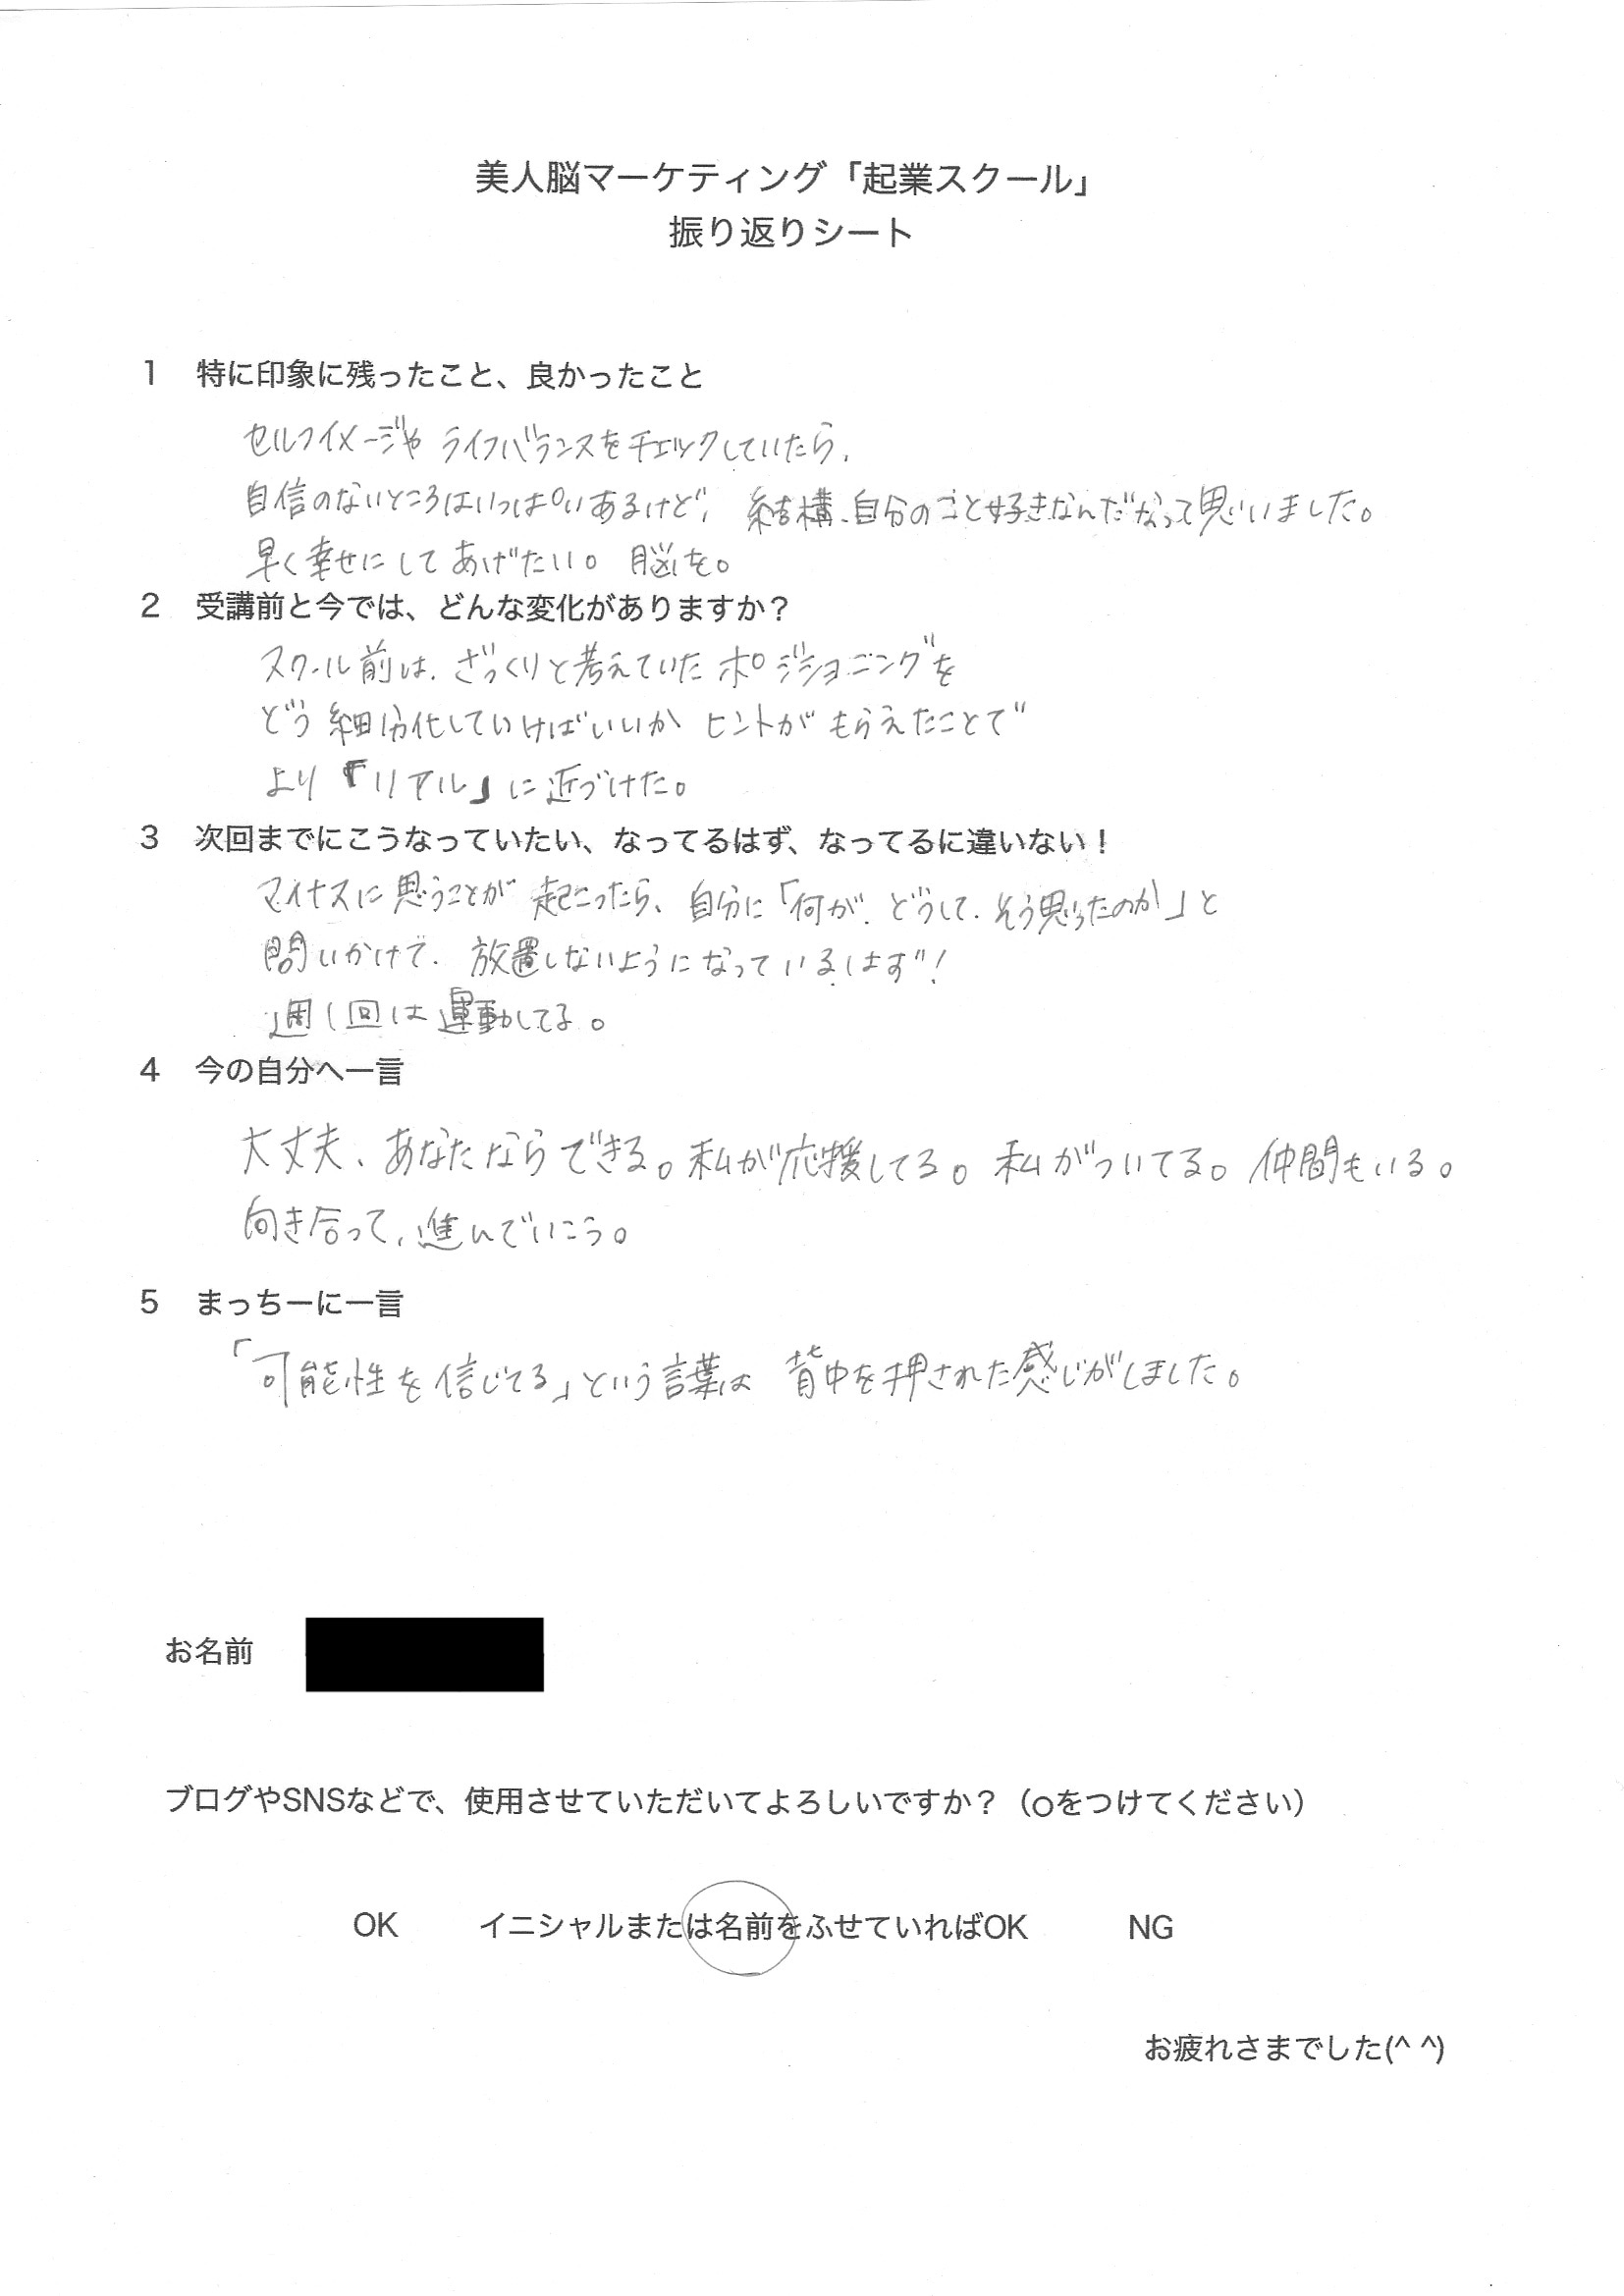 美人脳マーケティング「起業スクール」
振り返りシート
1 特に印象に残ったこと、良かったこと
セルフイメージや ライフバランスをチェックしていたら、
自信のないところはいっぱいあるけど、結構、自分のこと好きなんだなって思いました。
早く幸せにしてあげたい。脳を。
2 受講前と今では、どんな変化がありますか？
スクール前は、ざっくりと考えていたポジショニングを
どう細分化していけばいいか ヒントがもらえたことで
より『リアル』に近づけた。
3 次回までにこうなっていたい、なってるはず、なってるに違いない！
マイナスに思うことが 起こったら、自分に「何が、どうして、そう思ったのか」と
問いかけて、放置しないようになっているはず！
週1回は運動してる。
4 今の自分へ一言
大丈夫、あなたならできる。私が応援してる。私がついてる。仲間もいる。
向き合って、進んでいこう。
5 まっちーに一言
「可能性を信じてる」という言葉は 背中を押された感じがしました。
お名前
ブログやSNSなどで、使用させていただいてよろしいですか？（○をつけてください）
OK イニシャルまたは名前をふせていればOK NG
お疲れさまでした(^ ^)